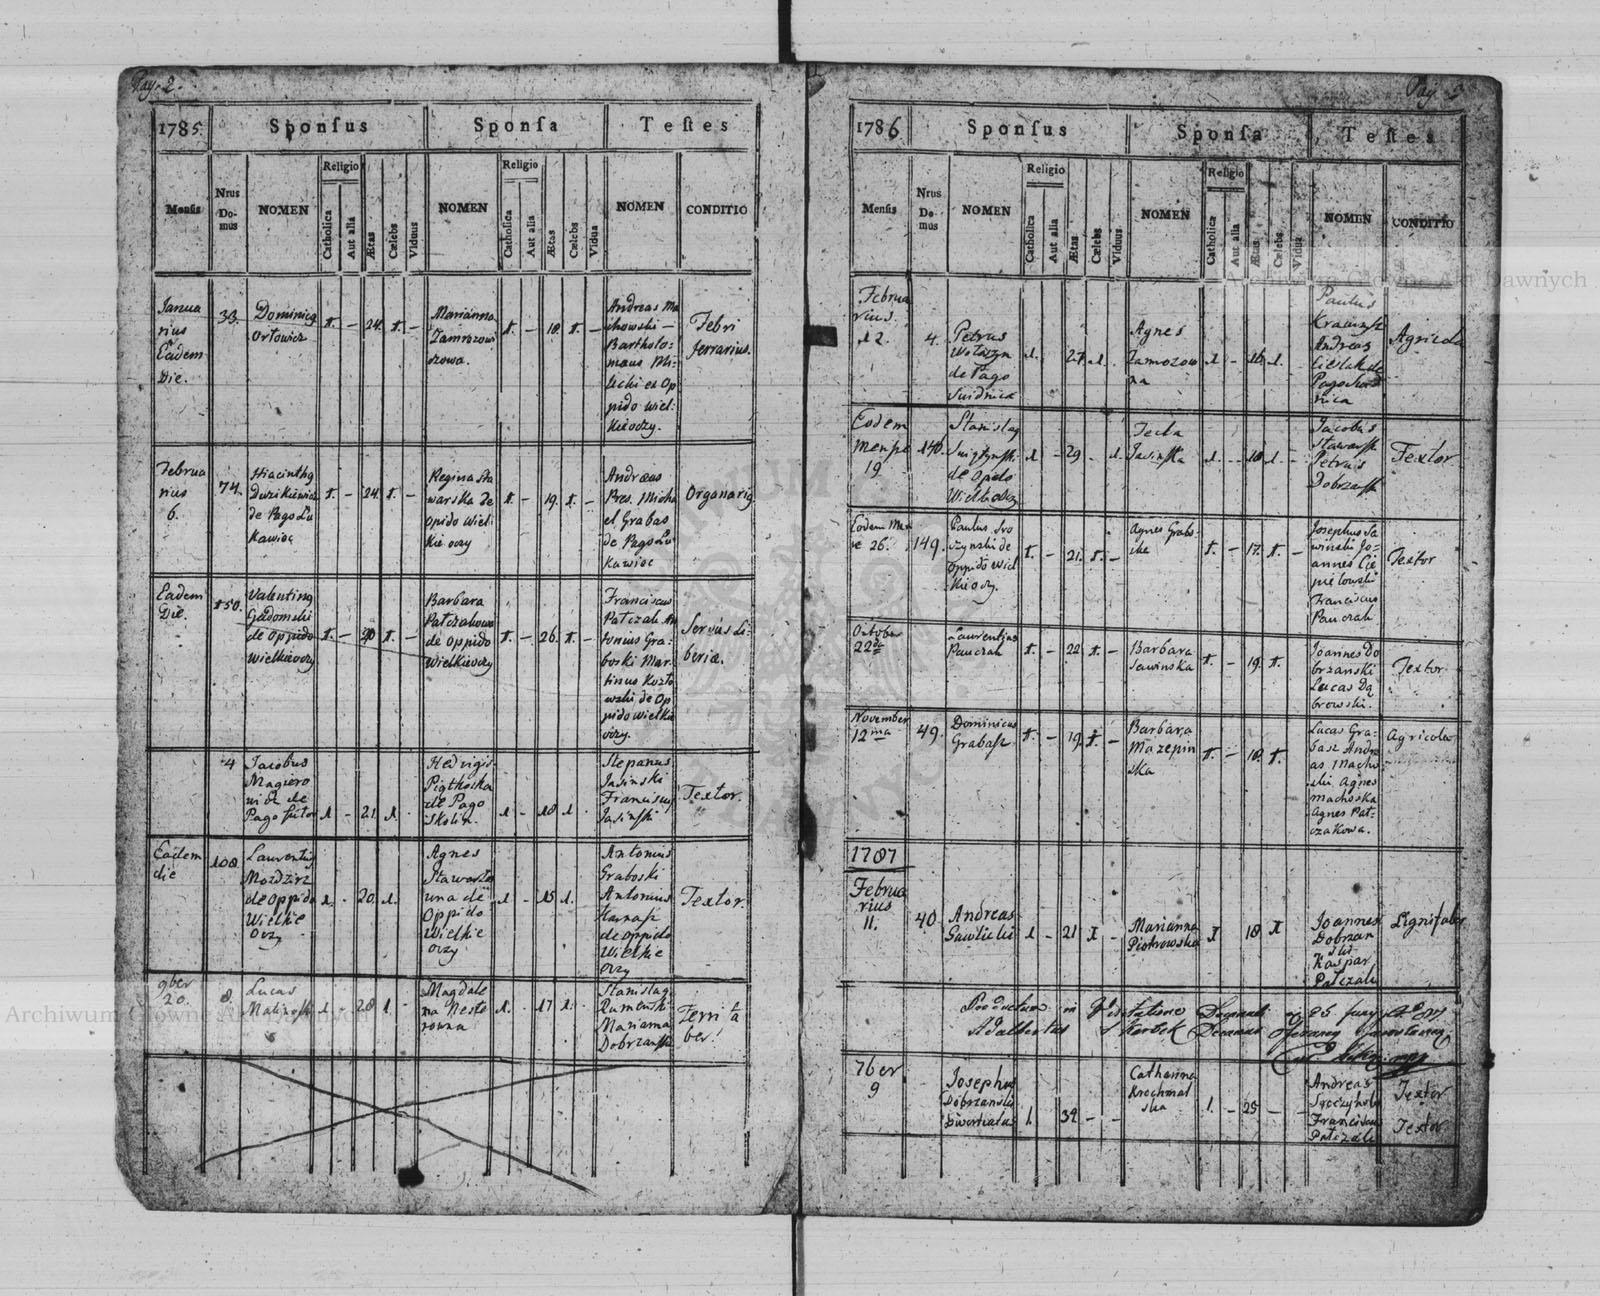 Pag. 2.
1785.
Sponsus
Sponsa
Testes
Mensis
Nrus Domus
NOMEN
Religio
Catholica
Aut alia
Ætas
Cælebs
Viduus
NOMEN
Religio
Catholica
Aut alia
Ætas
Cælebs
Vidua
NOMEN
CONDITIO
Janua
rius
Eadem
Die.
33.
Dominicq
Ortowicz
24.
Marianna
Zamrozowi
czowa.
18.
Andreas Ma
chowski
Bartholo-
maus Mi-
lechi ex Op
pido Wiel-
kieoczy.
Febri
ferrarius.
Februa
rius
6.
74.
Hiacinthq
Duzikiewicz
de Pago Lu
kawiec
24.
Regina Sta
warska de
opido Wiel
kie oczy
19.
Andræus
Pres. Micha
el Grabas
de Pago Lu
kawiec
Organariq
Eadem
Die.
150.
Valentinq
Gadomski
de oppido
Wielkieoczy
20
Barbara
Patczakowa
de oppido
Wielkieoczy
26.
Franciscus
Patczak An
tonius Gra-
boski Mar-
tinus Kozto
wski de Op
pido wielkie
oczy.
Servus Li-
beriæ.
4
Jacobus
Magiero
wicz de
Pago futor
21.
Hedvigis
Piątkoska
de Pago
Skolin.
18
Stepanus
Jasinski
Franciscus
Jasinski
Textor.
Eadem
die
108
Laurentiq
Mozdzirz
de oppido
Wielkie
oczy
20.
Agnes
Stawarzo
wna de
Oppido
Wielkie
oczy
15
Antonius
Graboski
Antonius
Harnasz
de oppido
Wielkie
oczy
Textor.
9ber
20.
8.
Lucas
Malinoski
28
Magdale
na Neste
rowna
17
Stanislaq
Rumenski
Marianna
Dobrzanska
Pag. 3
1786
Sponsus
Sponsa
Testes
Mensis
Nrus Domus
NOMEN
Religio
Catholica
Aut alia
Ætas
Cælebs
Viduus
NOMEN
Religio
Catholica
Aut alia
Ætas
Cælebs
Vidua
NOMEN
CONDITIO
Februa
rius.
12.
4.
Petrus
Wotoszyn
de Pago
Swidnica
27
Agnes
Zamozow
na
16
Paulus
Krawczysz
Andreas
Cieslak de
Pago Swid
nica
Agricola
Eodem
Mense
19
140.
Stanislaq
de Opido
Wielkoczy
29
Tecla
Jasinska
18
Jacobus
Stawarsk
Petrus
Dobrzansk
Textor
Eodem Men
se 26.
149.
Paulus Svo
szynski de
oppido Wiel
kie oczy.
21.
Agnes Grabo-
ska
17.
Josephus Sa
winski Jo-
annes Cie
pielowski
Franciscus
Pauczak
Textor
October
22da
Laurentius
Pauczak
22.
Barbara
Sawinska
19.
Joannes Do
brzanski
Lucas Dą
browski.
Textor
November
12ma
49.
Dominicus
Grabasz
19.
Barbara
Mazepin
ska
18.
Lucas Gra-
basz Andre
as Macho-
ski Agnes
Machoska
Agnes Pat-
czakowa.
Agricola
1787
Februa
rius
11.
40
Andreas
Gawlicki
21
Marianna
Piotrowska
18
Joannes
Dobrzan
ski
Kaspar
Patczak
Lignifaber
Productum in Visitatione Decanali
Adalbertus Decanus
7ber
9
Josephus
Dobrzanski
Divortiatus
32
Catharina
Krochmal
ska
25
Andreas
Franciscus
Patczak
Textor
Textor
Archiwum Główne Akt Dawnych
Archiwum Główne Akt Dawnych